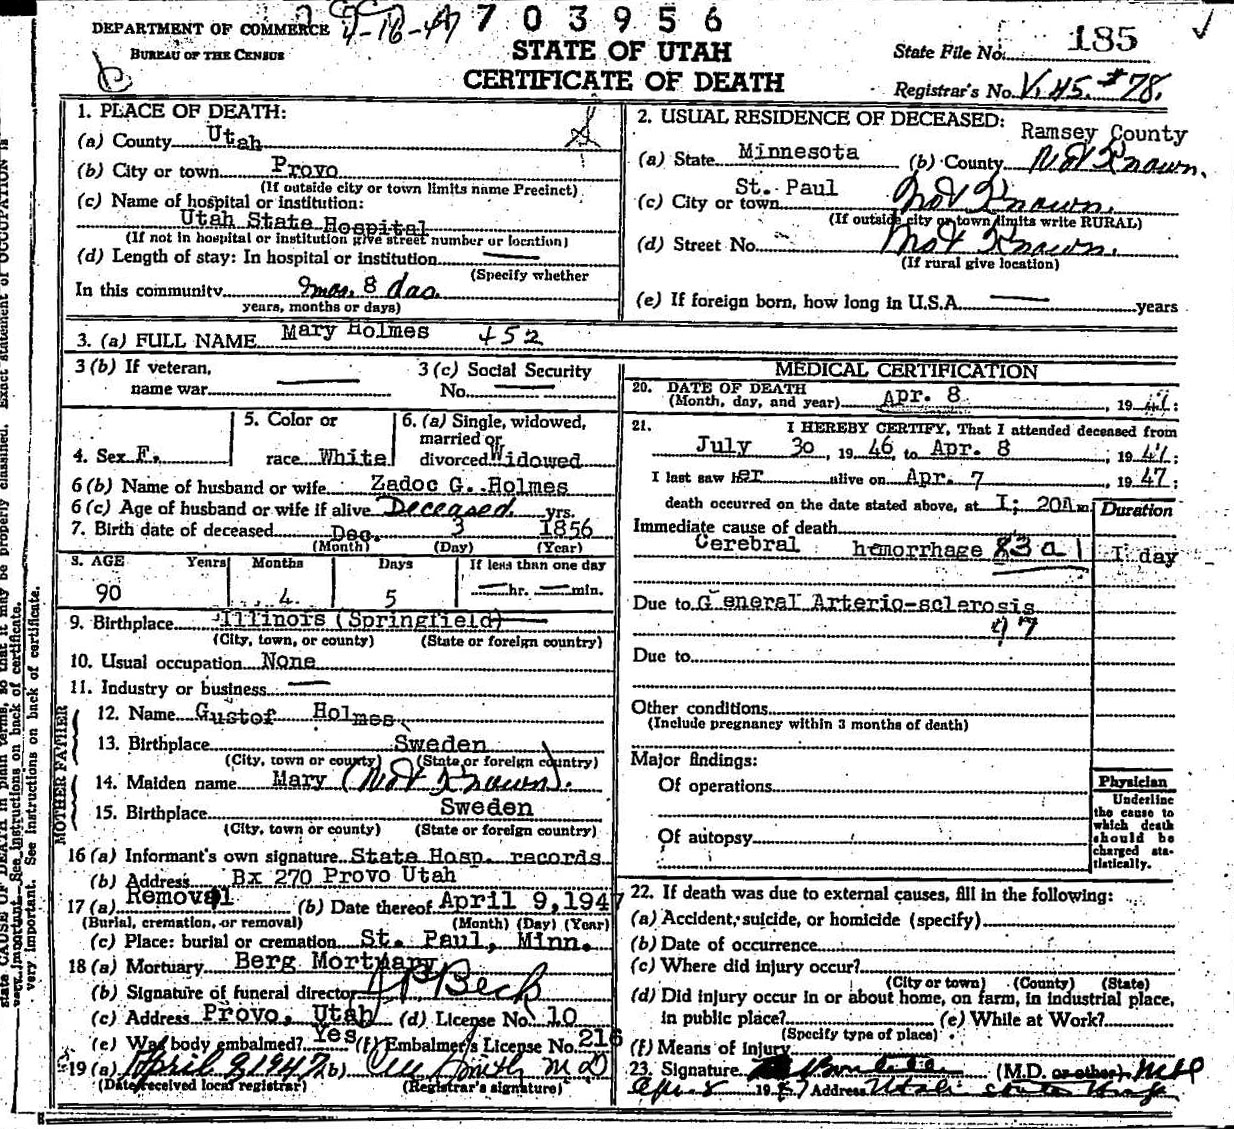 703956
DEPARTMENT OF COMMERCE 4-16-47
BUREAU OF THE CENSUS
STATE OF UTAH
CERTIFICATE OF DEATH
State File No. 185
Registrar's No. V.45. #78.
1. PLACE OF DEATH:
(a) County Utah
(b) City or town Provo
(If outside city or town limits name Precinct)
(c) Name of hospital or institution:
Utah State Hospital
(If not in hospital or institution give street number or location)
(d) Length of stay: In hospital or institution —
(Specify whether
In this community 9 mos. 8 das.
years, months or days)
2. USUAL RESIDENCE OF DECEASED:
Ramsey County
(a) State Minnesota (b) County Not Known.
St. Paul
(c) City or town Not Known.
(If outside city or town limits write RURAL)
(d) Street No. Not Known.
(If rural give location)
(e) If foreign born, how long in U.S.A. — years
3. (a) FULL NAME Mary Holmes 452
3 (b) If veteran,
name war —
3 (c) Social Security
No. —
4. Sex F.
5. Color or
race White
6. (a) Single, widowed,
married or
divorced Widowed
6 (b) Name of husband or wife Zadoc G. Holmes
6 (c) Age of husband or wife if alive Deceased. yrs.
7. Birth date of deceased Dec. 3 1856
(Month) (Day) (Year)
8. AGE Years Months Days If less than one day
90 4 5 — hr. — min.
9. Birthplace Illinois (Springfield)
(City, town, or county) (State or foreign country)
10. Usual occupation None
11. Industry or business —
FATHER
12. Name Gustof Holmes
13. Birthplace Sweden
(City, town or county) (State or foreign country)
MOTHER
14. Maiden name Mary (Not Known).
15. Birthplace Sweden
(City, town or county) (State or foreign country)
16 (a) Informant's own signature State Hosp. records
(b) Address Bx 270 Provo Utah
17 (a) Removal (b) Date thereof April 9,1947
(Burial, cremation, or removal) (Month) (Day) (Year)
(c) Place: burial or cremation St. Paul, Minn.
18 (a) Mortuary Berg Mortuary
(b) Signature of funeral director Beck
(c) Address Provo, Utah (d) License No. 10
(e) Was body embalmed? Yes (f) Embalmer's License No. 216
19 (a) April 9 1947 (b) Smith M D
(Date received local registrar) (Registrar's signature)
MEDICAL CERTIFICATION
20. DATE OF DEATH
(Month, day, and year) Apr. 8, 1947:
21. I HEREBY CERTIFY, That I attended deceased from
July 30, 1946, to Apr. 8, 1947;
I last saw her alive on Apr. 7, 1947;
death occurred on the date stated above, at 1; 20A m.
Duration
Immediate cause of death
Cerebral hemorrhage 83 a 1 I day
Due to General Arterio-sclerosis
97
Due to
Other conditions
(Include pregnancy within 3 months of death)
Major findings:
Of operations
Of autopsy
Physician
Underline
the cause to
which death
should be
charged sta-
tistically.
22. If death was due to external causes, fill in the following:
(a) Accident, suicide, or homicide (specify)
(b) Date of occurrence
(c) Where did injury occur?
(City or town) (County) (State)
(d) Did injury occur in or about home, on farm, in industrial place,
in public place? (e) While at Work?
(Specify type of place)
(f) Means of injury
23. Signature (M.D. or other) MD
Apr. 8 1947 Address Utah State Hosp
state CAUSE OF DEATH in plain terms, so that it may be properly classified. Exact statement of OCCUPATION is
very important. See instructions on back of certificate.